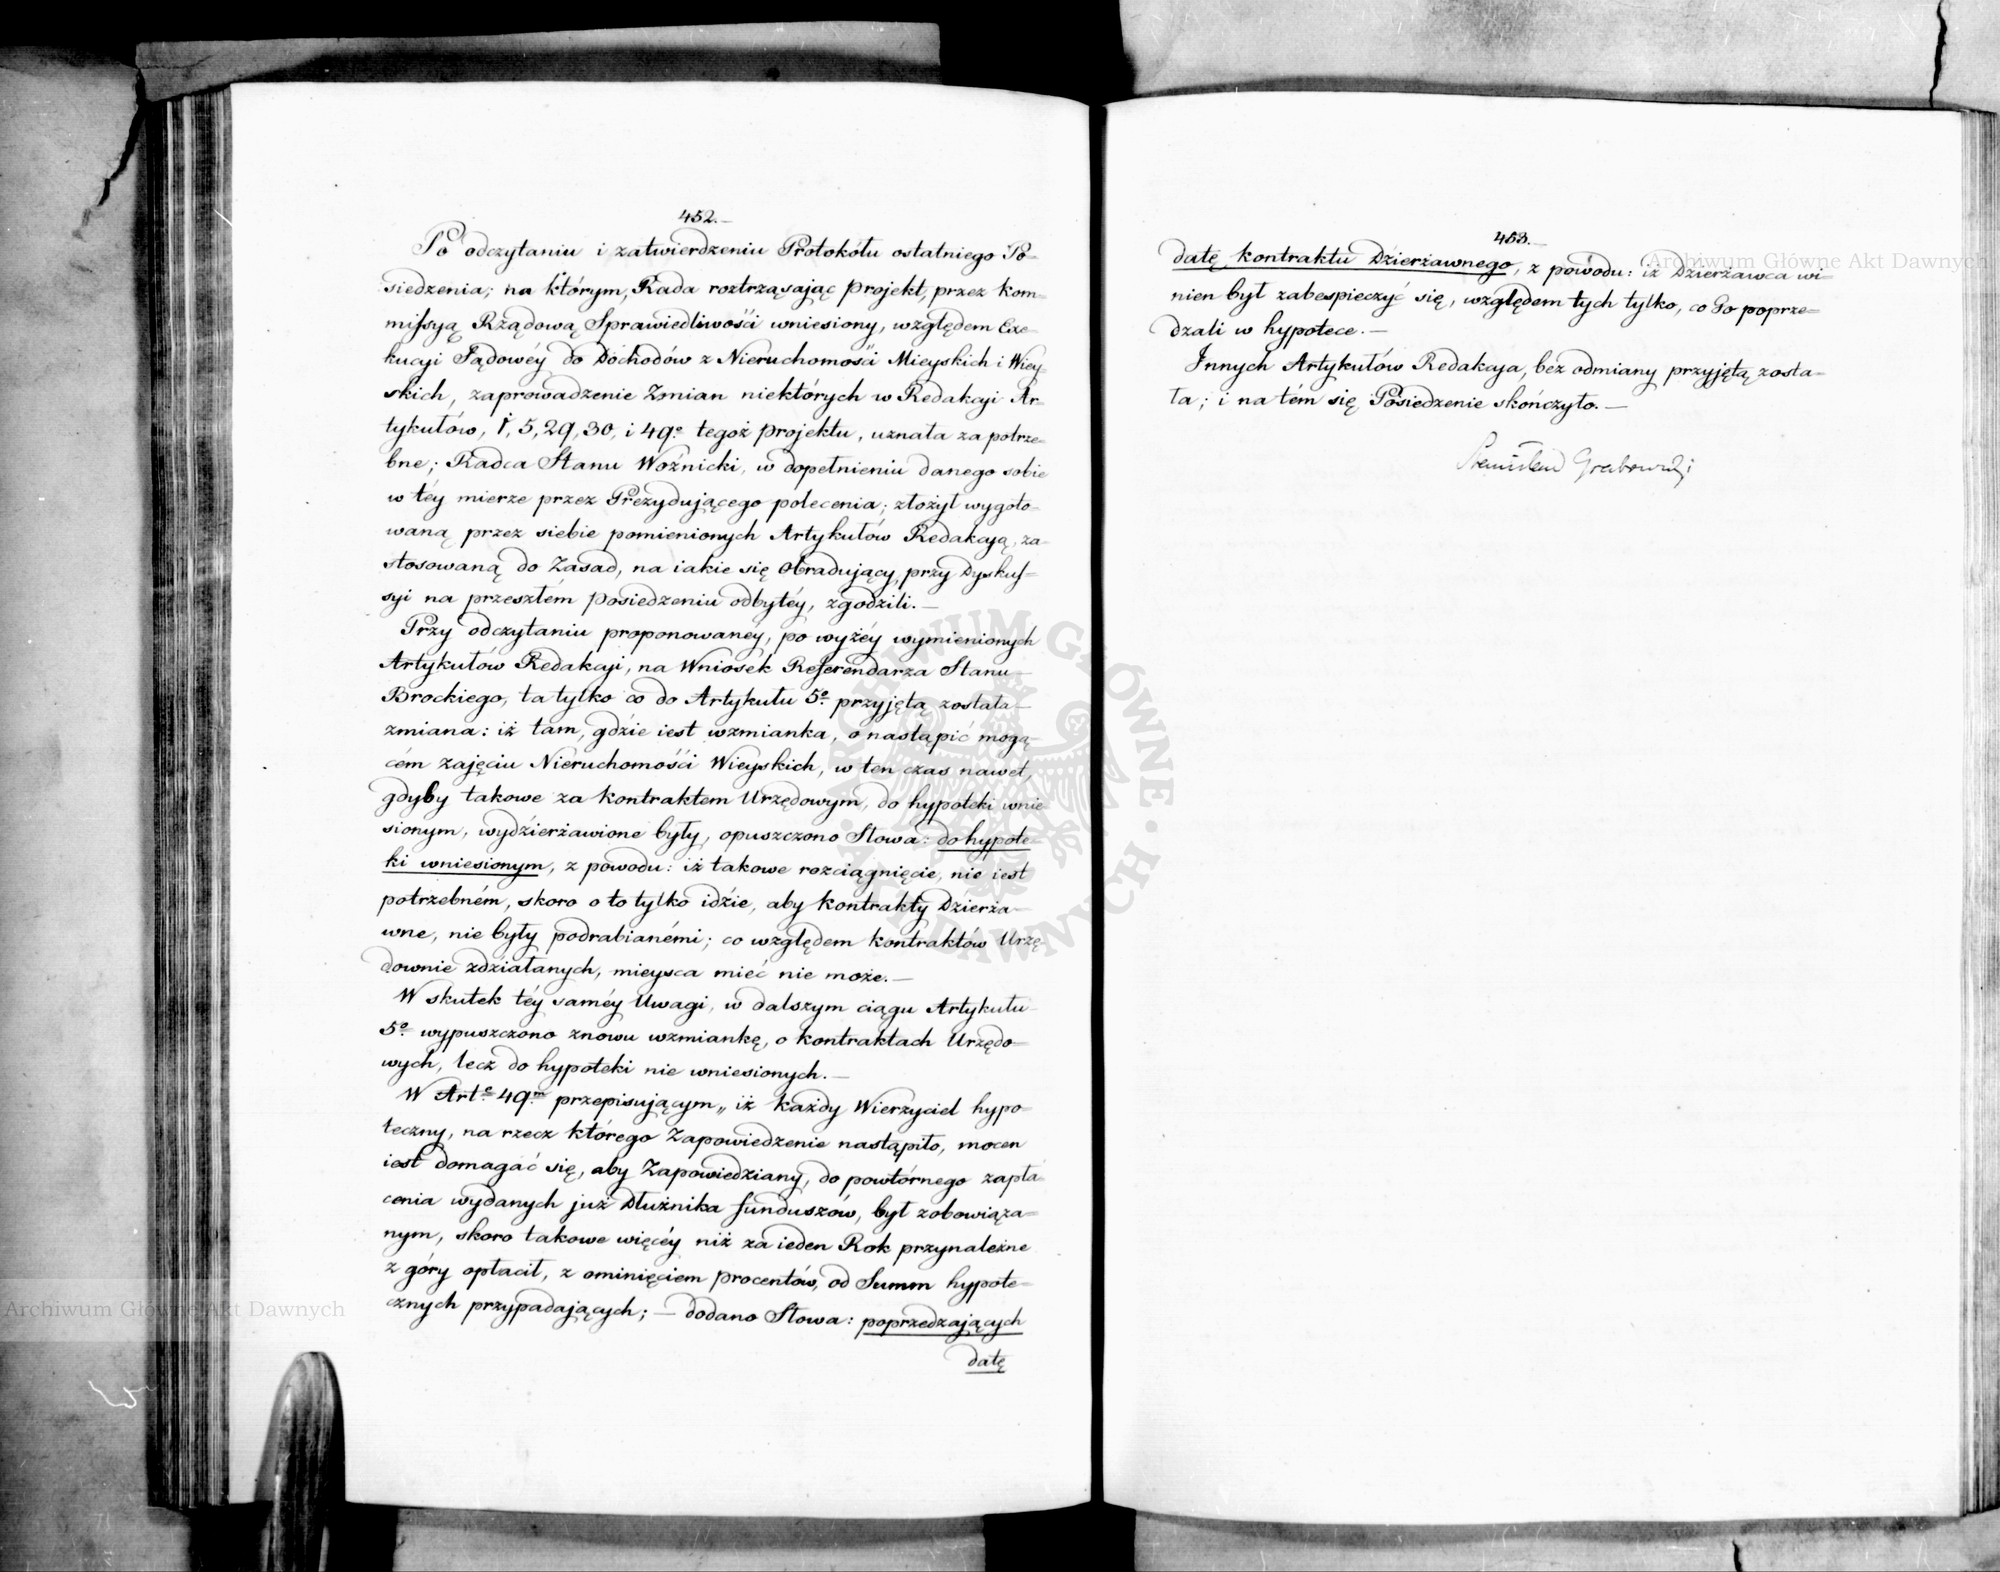 452.—
Po odczytaniu i zatwierdzeniu Protokółu ostatniego Po=
siedzenia; na którym, Rada roztrząsając projekt, przez Kom=
missyą Rządową Sprawiedliwości wniesiony, względem Exe=
kucyi Sądowéy do Dochodów z Nieruchomości Mieyskich i Wiey=
skich, zaprowadzenie Zmian niektórych w Redakcyi Ar=
tykułów, 1, 5, 29, 30, i 49.º tegoż projektu, uznała za potrze=
bne; Radca Stanu Woźnicki, w dopełnieniu danego sobie
w téy mierze przez Prezydującego polecenia; złożył wygoto=
waną przez siebie pomienionych Artykułów Redakcyą, za=
stosowaną do Zasad, na iakie się Obradujący, przy Dyskus=
syi na przeszłém posiedzeniu odbytéy, zgodzili.—
Przy odczytaniu proponowanéy, po wyżéy wymienionych
Artykułów Redakcyi, na Wniosek Referendarza Stanu
Brockiego, ta tylko co do Artykułu 5.º przyjętą została
zmiana: iż tam, gdzie iest wzmianka, o nastąpić mogą=
cém zajęciu Nieruchomości Wieyskich, w ten czas nawet,
gdyby takowe za kontraktem Urzędowym, do hypoteki wnie
sionym, wydzierżawione były, opuszczono Słowa: do hypote=
ki wniesionym, z powodu: iż takowe rozciągnięcie, nie iest
potrzebném, skoro o to tylko idzie, aby kontrakty Dzierża=
wne, nie były podrabianémi; co względem kontraktów Urzę=
downie zdziałanych, mieysca mieć nie może.—
W skutek téy saméy Uwagi, w dalszym ciągu Artykułu
5.º wypuszczono znowu wzmiankę, o kontraktach Urzędo=
wych, lecz do hypoteki nie wniesionych.—
W Art.e 49.m przepisującym „ iż każdy Wierzyciel hypo=
teczny, na rzecz którego Zapowiedzenie nastąpiło, mocen
iest domagać się, aby Zapowiedziany, do powtórnego zapła=
cenia wydanych już Dłużnika funduszów, był zobowiąza=
nym, skoro takowe więcéy niż za ieden Rok przynależne
z góry opłacił, z ominięciem procentów, od Summ hypote=
cznych przypadających; — dodano Słowa: poprzedzających
datę
453.—
datę kontraktu Dzierżawnego, z powodu: iż Dzierżawca wi=
nien był zabespieczyć się, względem tych tylko, co Go poprze=
dzali w hypotece.—
Innych Artykułów Redakcya, bez odmiany przyjętą zosta=
ła; i na tém się Posiedzenie skończyło.—
Stanisław Grabowski
Archiwum Główne Akt Dawnych
Archiwum Główne Akt Dawnych
ARCHIWUM GŁÓWNE AKT DAWNYCH